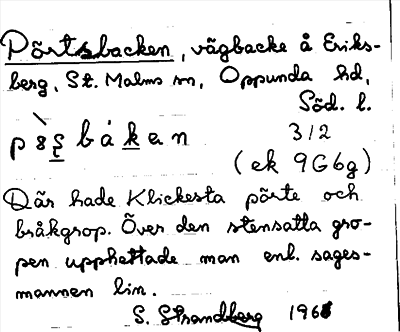 Pörtsbacken, vägbacke å Eriks-
berg, St. Malms sn, Oppunda hd,
Söd. l.
3/2
(ek 9G6g)
Där hade Klickesta pörte och
bråkgrop. Över den stensatta gro-
pen upphettade man enl. sages-
mannen lin.
S. Strandberg 196